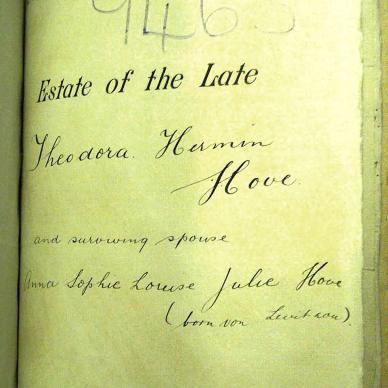 9463
Estate of the Late
Theodora. Hermin
Hove.
and surviving spouse
Anna Sophie Louise Julie Hove
(born von